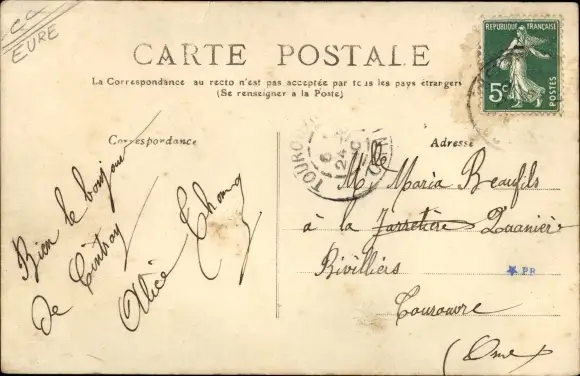 EURE
CARTE POSTALE
La Correspondance au recto n'est pas acceptée par tous les pays étrangers
(Se renseigner à la Poste)
RÉPUBLIQUE FRANÇAISE
5c
POSTES
Correspondance
Bien le bonjour
de Cintray
Alice Thomas
TOUROUVRE
24
Adresse
Mlle Maria Beaufils
à la Jarretière
PR
Tourouvre
(Orne)